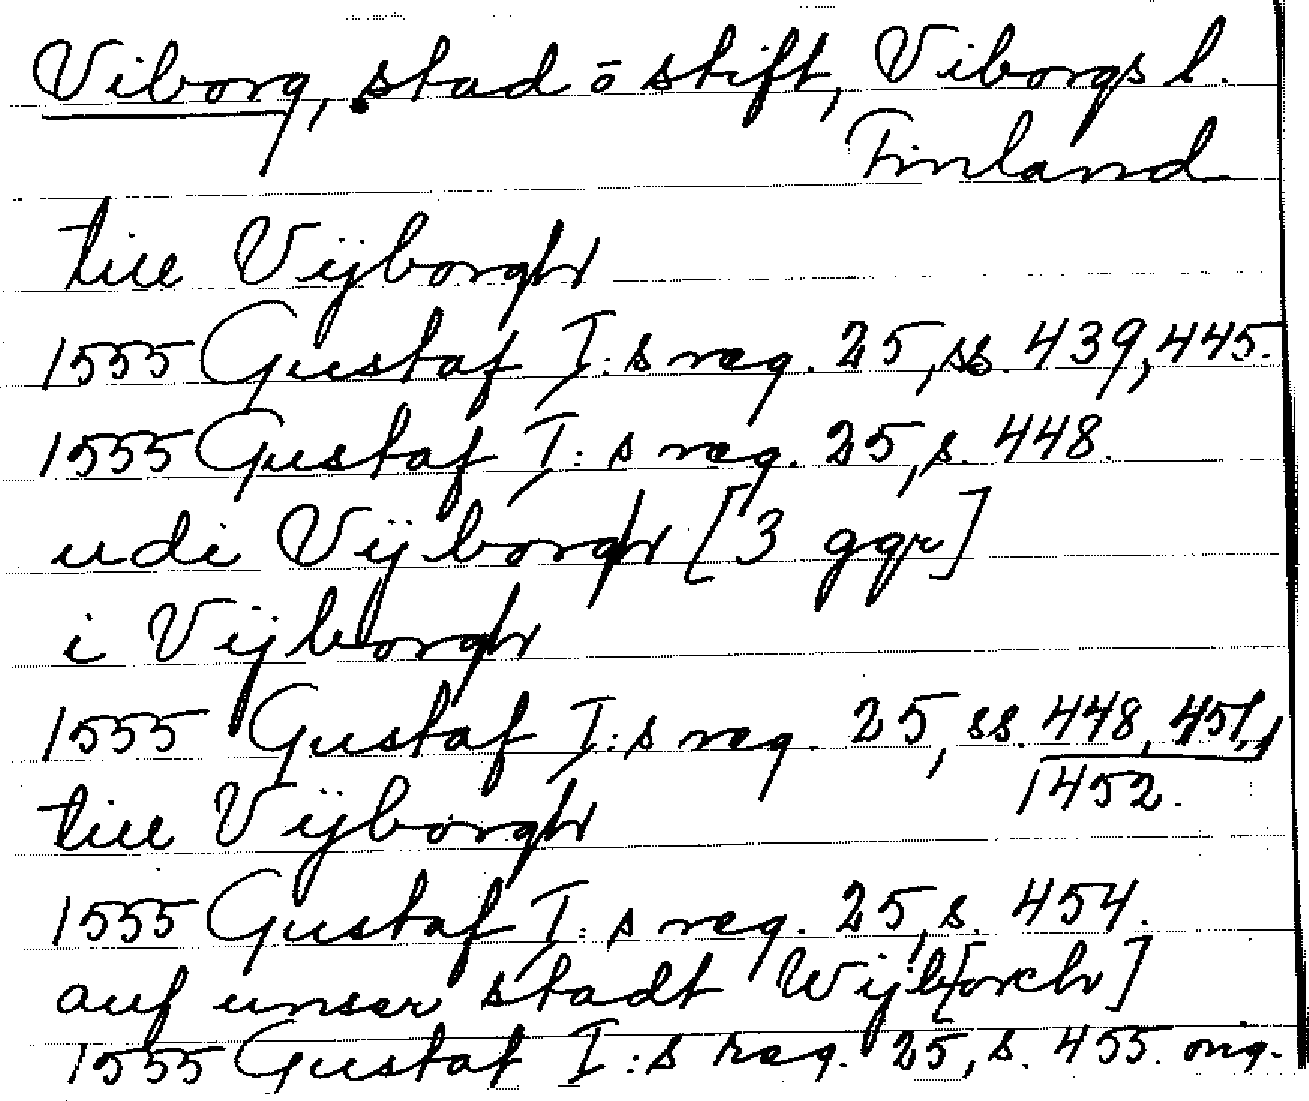 Viborg, stad o stift, Viborgs l.
Finland
till Vijborgh
1555 Gustaf I:s reg. 25, ss. 439, 445.
1555 Gustaf I:s reg. 25, s. 448.
udi Vijborgh [3 ggr]
i Vijborgh
1555 Gustaf I:s reg. 25, ss. 448, 451,
452.
till Vijborgh
1555 Gustaf I:s reg. 25, s. 454.
auf unser stadt Wijb[orch]
1555 Gustaf I:s reg. 25, s. 455.